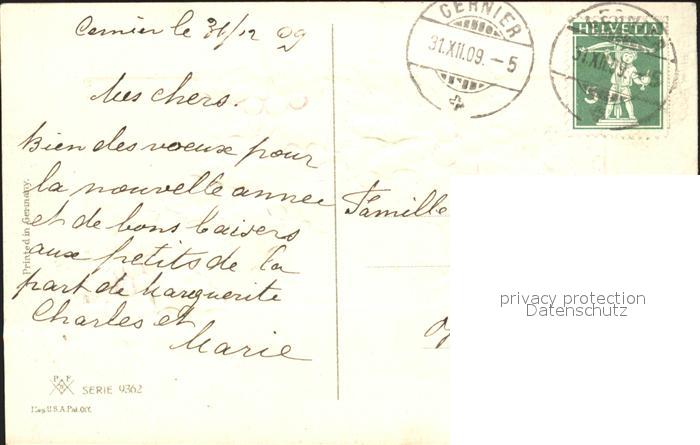 Cernier le 31/12 09
Mes chers.
Bien des voeux pour
la nouvelle annee
et de bons baisers
aux petits de la
part de Marguerite
Charles et
Marie
Famille
CERNIER
31.XII.09. - 5
CERNIER
31.XII.09. - 5
HELVETIA
5
privacy protection
Datenschutz
Printed in Germany.
P F B
SERIE 9362
Reg. U.S.A. Pat. Off.